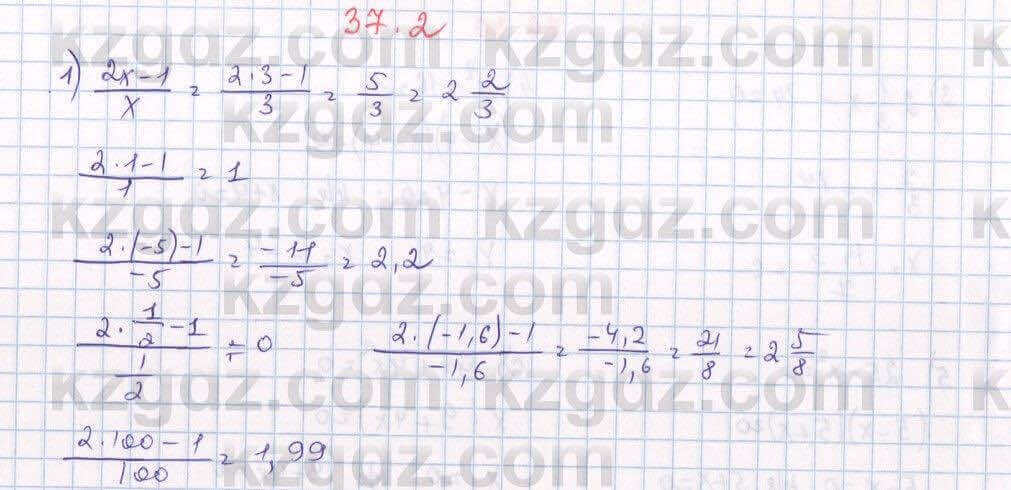 37.2
1) (2x-1)/x = (2·3-1)/3 = 5/3 = 2 2/3
(2·1-1)/1 = 1
(2·(-5)-1)/-5 = -11/-5 = 2,2
(2·1/2-1)/(1/2) = 0 (2·(-1,6)-1)/-1,6 = -4,2/-1,6 = 21/8 = 2 5/8
(2·100-1)/100 = 1,99
kzgdz.com kzgdz.com
kzgdz.com
kzgdz.com kzgdz.com
kzgdz.com
kzgdz.com kzgdz.com